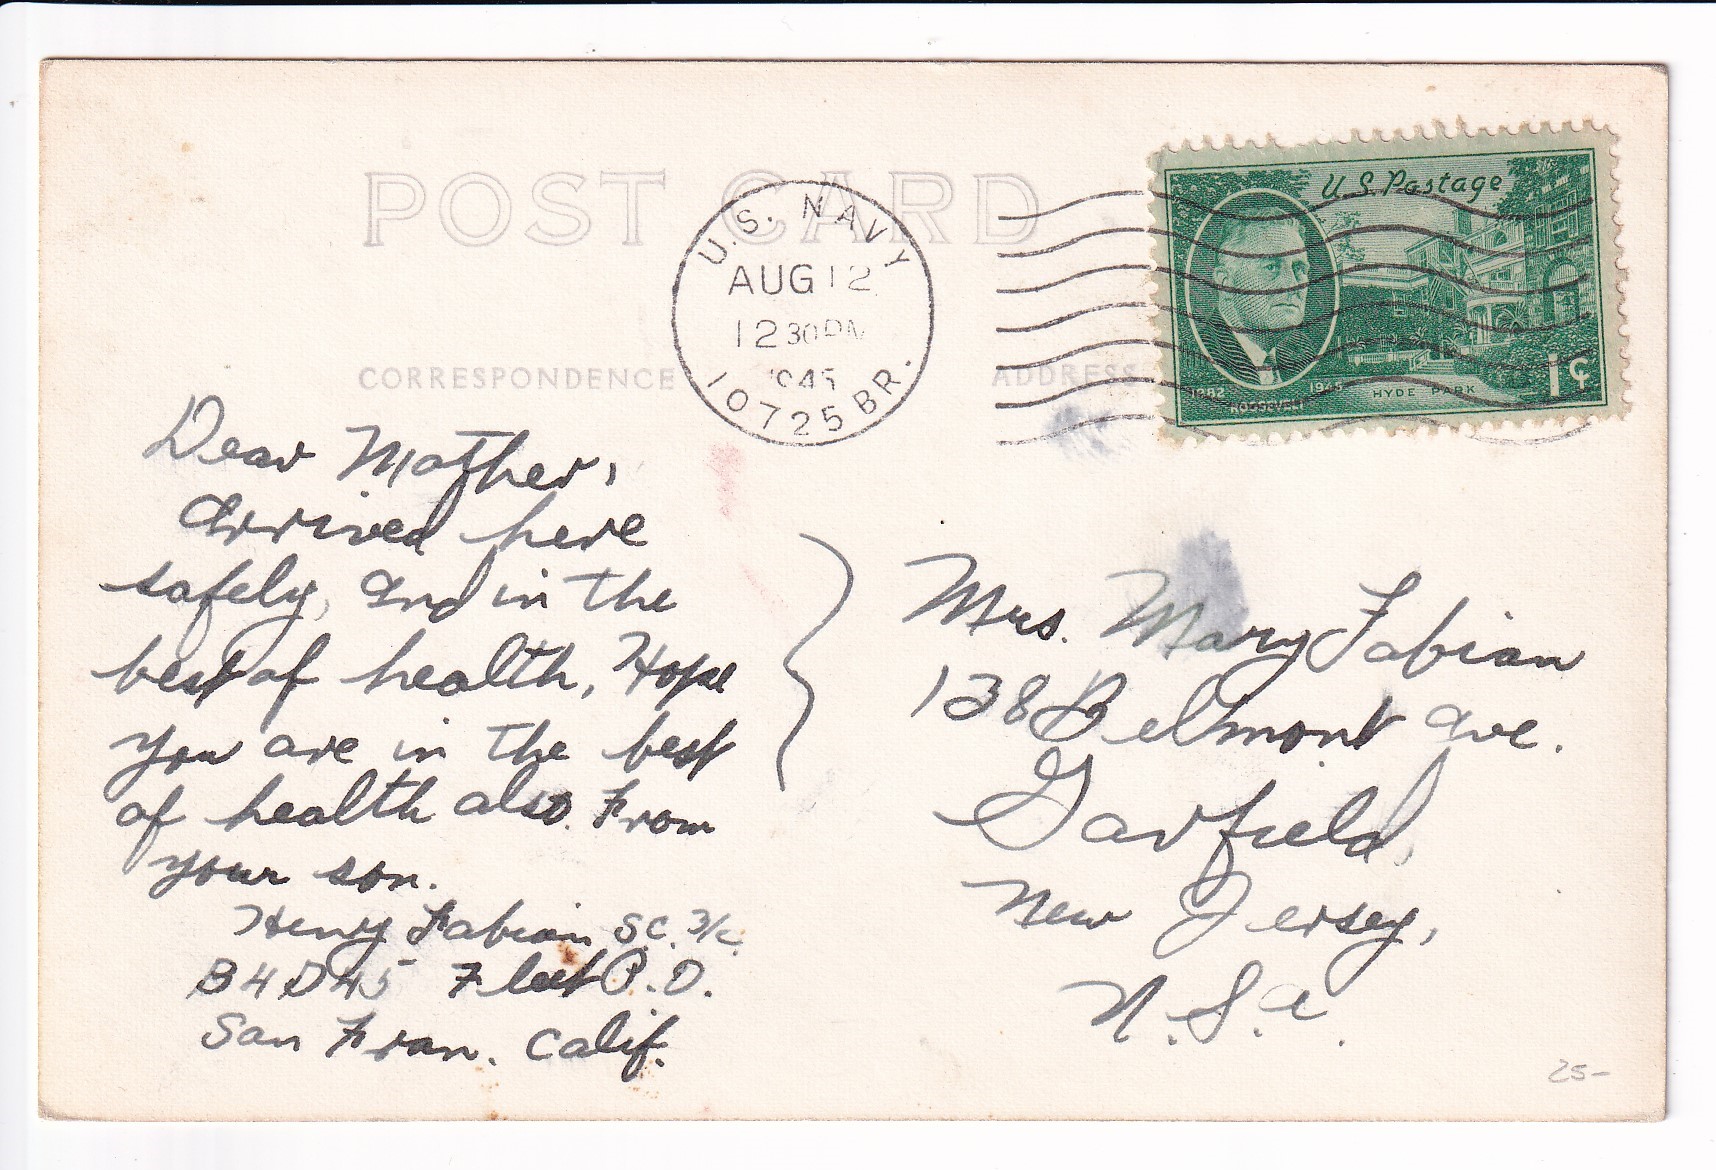 POST CARD
U.S. NAVY
AUG 12
12 30 PM
1945
10725 BR.
U.S. Postage
1882 1945
ROOSEVELT
HYDE PARK
1¢
CORRESPONDENCE
ADDRESS
Dear Mother,
Arrived here
safely, and in the
best of health, Hope
you are in the best
of health also. From
your son.
Henry Fabian SC. 3/c.
B4D45 Fleet P.O.
San Fran. Calif.
Mrs. Mary Fabian
138 Belmont Ave.
Garfield,
New Jersey,
U.S.A.
25-